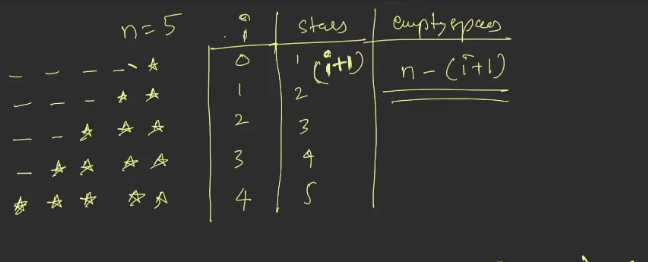 n=5 i stars empty spaces
- - - - ☆ 0 1 (i+1) n - (i+1)
- - - ☆ ☆ 1 2
- - ☆ ☆ ☆ 2 3
- ☆ ☆ ☆ ☆ 3 4
☆ ☆ ☆ ☆ ☆ 4 5